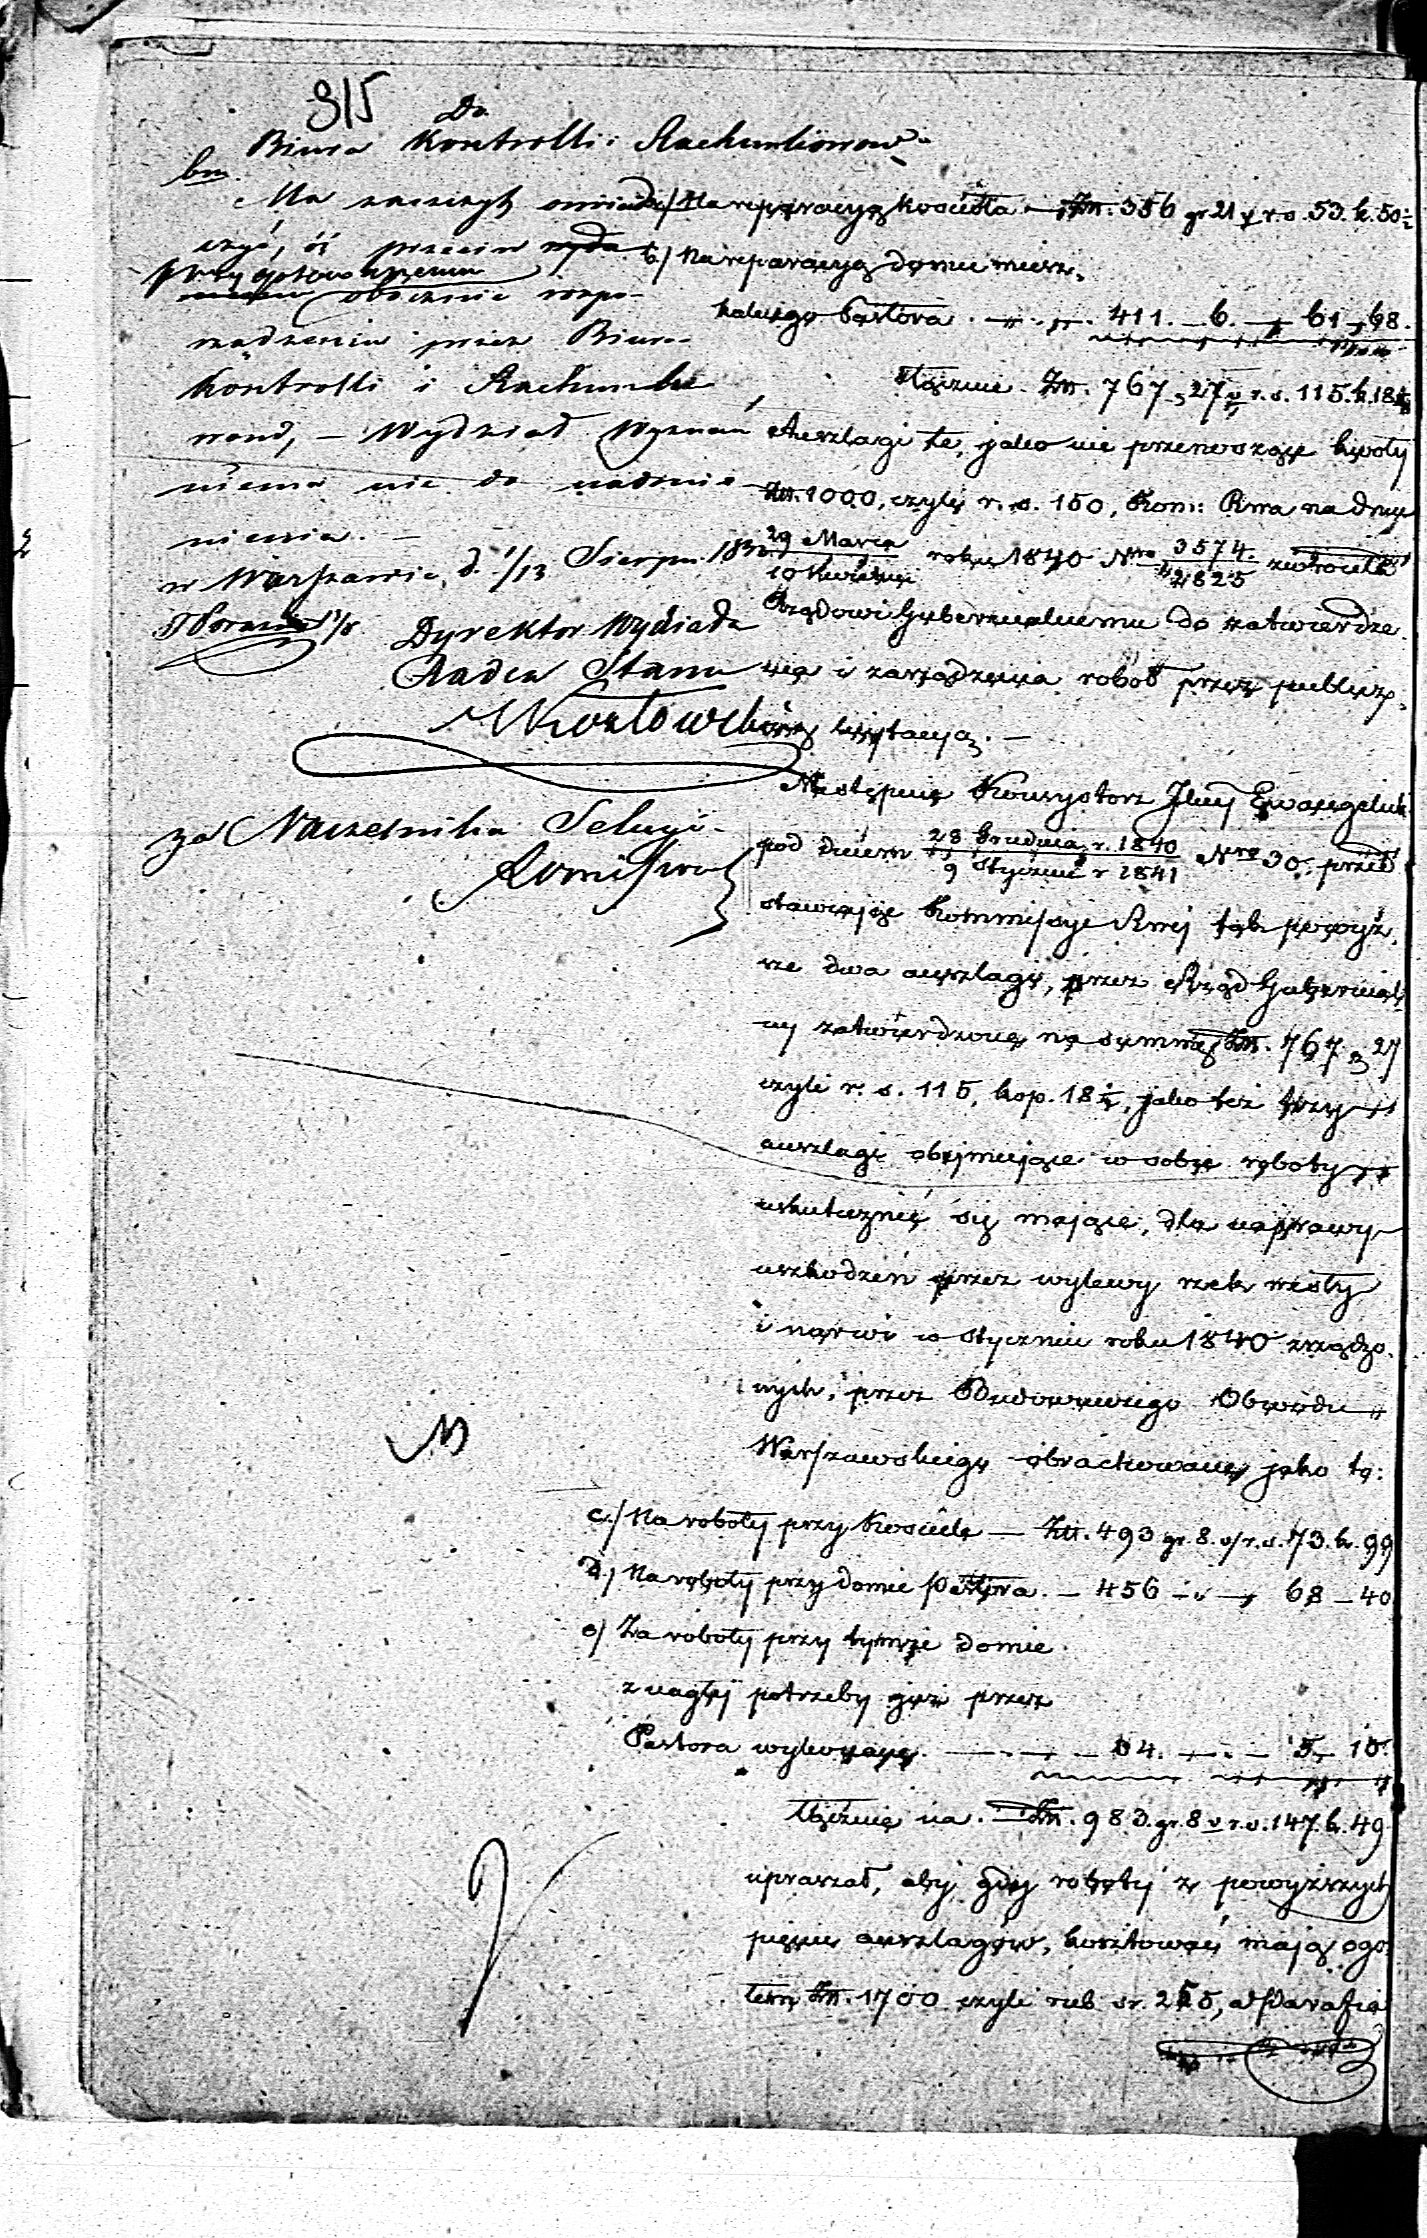 315
Do
Biura Kontrolli i Rachunkowo
bm.
Ma zaszczyt oświad
czyć, iż przeciw
przygotowanemu
obocznie rozpo-
rządzeniu przez Biuro
Kontrolli i Rachunko
wości, — Wydział Wyznań
niema nic do nadmie-
nienia. —
w Warszawie, d. 1/13 Sierpn. 184
Dyrektor Wydziału
Radca Stanu
Kozłowski
za Naczelnika Sekcyi
a/ Na reparacyą kościoła — Złt. 356 gr 21 v r. s. 53. k. 50½
b/ Na reparacyą domu miesz-
kalnego Pastora . — „ — „ . 411. — 6. — „ 61 „ 68.
Łącznie Złt. 767 „ 27 v r. s. 115. k. 18½
Anszlagi te, jako nie przenoszące kwoty
Złt. 1000, czyli r. s. 150, Kom: Rwa na dniu
29 Marca / 10 Kwietnia roku 1840 Nro 3574 / 42825 zwróciła
Rządowi Gubernialnemu do zatwierdze-
nia i zarządzenia robót przez publicz-
ną licytacyą. —
Następnie Konsystorz Jlny Ewangelick
pod dniem 28 Grudnia r. 1840 / 9 Stycznia r 1841 Nro 30. przed
stawiając Kommissyi Rwej tak powyż-
sze dwa anszlagi, przez Rząd Gubernial
ny zatwierdzone na summę Złt. 767 „ 27
czyli r. s. 115, kop. 18½, jako też trzy
anszlagi obejmujące w sobie roboty
uskutecznić się mające, dla naprawy
uszkodzeń przez wylewy rzek Wisły
i Narwi w Styczniu roku 1840 zrządzo-
nych, przez Budowniczego Obwodu
Warszawskiego obrachowane, jako to:
c/ Na roboty przy Kościele — Złt. 493 gr. 8. v r. s. 73. k. 99
d/ Na roboty przy domie Pastora. — 456 — „ — „ 68 — 40
e/ Za roboty przy tymże domie
z nagłej potrzeby już przez
Pastora wykonane. — 34. — 5 „ 10.
Łącznie na Złt. 983. gr. 8 v r. s. 147. k. 49
upraszał, aby gdy roboty z powyższych
pięciu anszlagów, kosztować mają ogó
łem Złt. 1700 czyli rub sr. 255, a Parafia